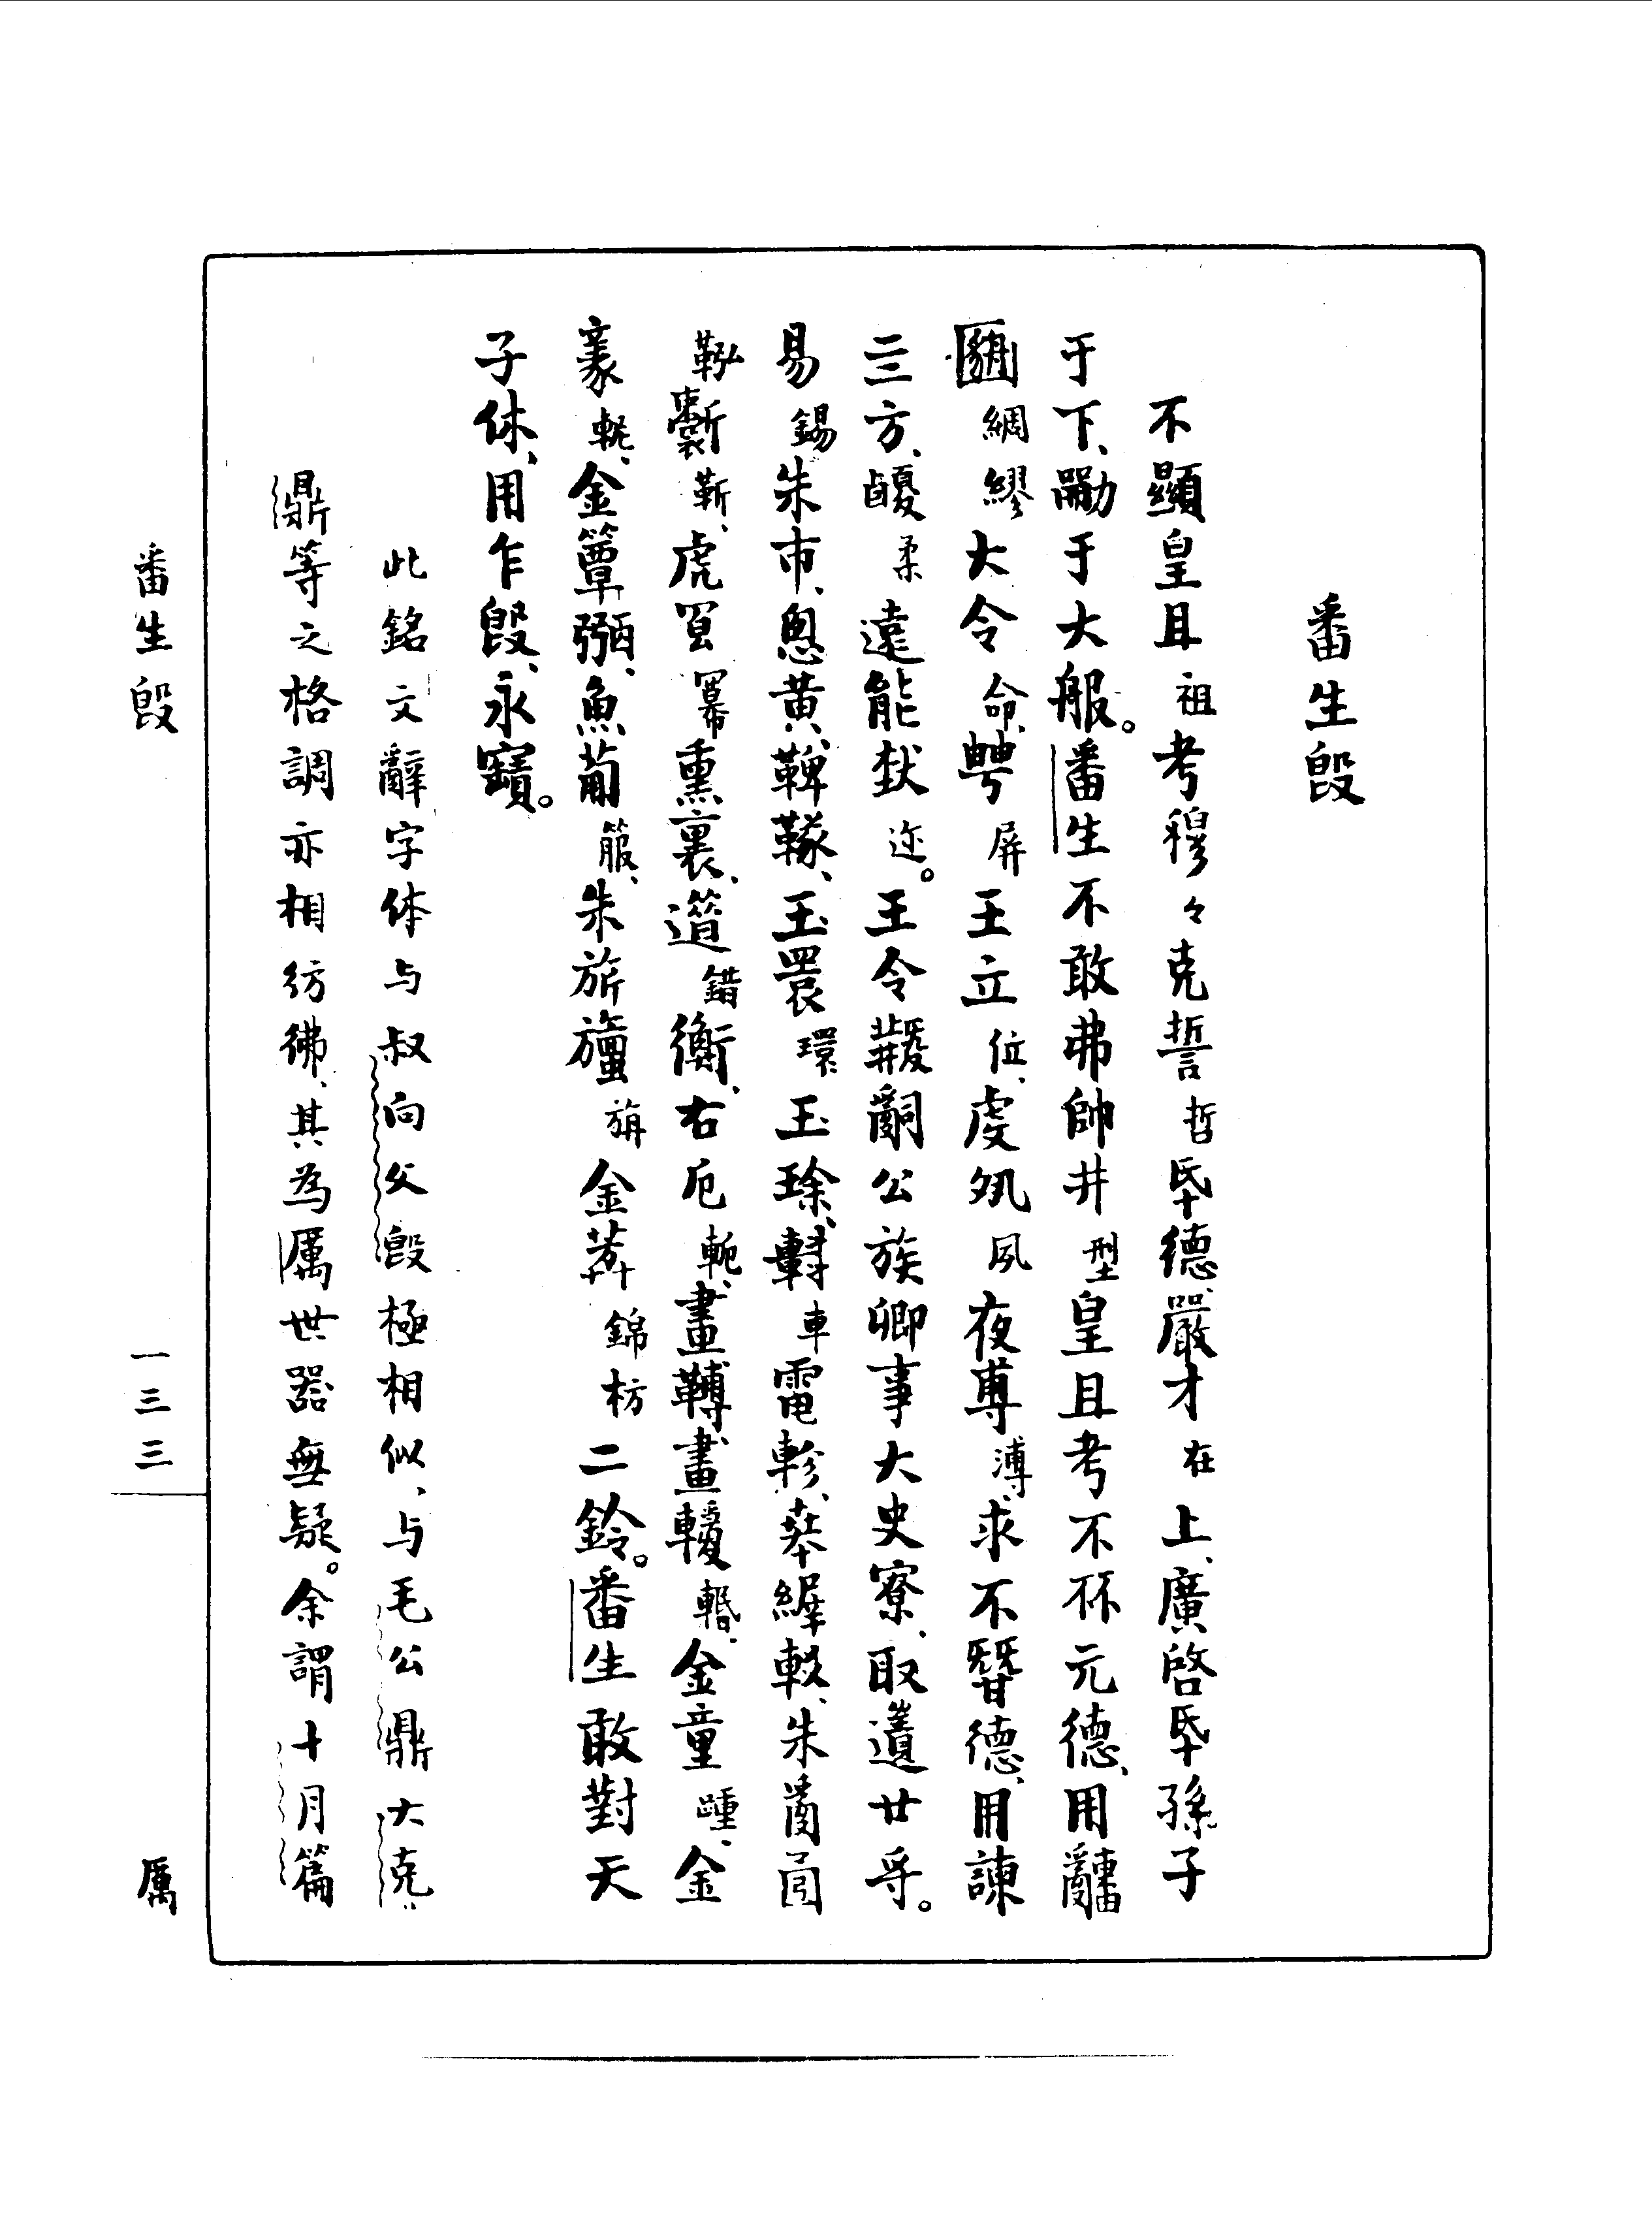 番生𣪘
不顯皇且祖考穆々克誓哲氒德、嚴才在上、廣啓氒孫子
于下、勵于大服。番生不敢弗帥井型皇且考不㔻元德、用
綢繆大令命、甹屏王立位、虔夙夙夜尃溥求不朁德、用諫
三方、柔遠能埶迩。王令𤔲公族卿事大史寮、取廿寽。
易錫朱巿、悤黃、鞞鞣、玉睘環玉琭、車電軫、𠦪縟較、朱𠃨
靳、虎冟冪熏裏、錯衡、右厄軛、畫轉、畫𨍽、金童踵、金
豙軝、金簟弼、魚葡箙、朱旂旜旃金錦枋二鈴。番生敢對天
子休、用乍𣪘、永寶。
此銘文辭字体与叔向父𣪘極相似、与毛公鼎大克
鼎等之格調亦相彷彿、其為厲世器無疑。余謂十月篇
番生𣪘
一三三
厲